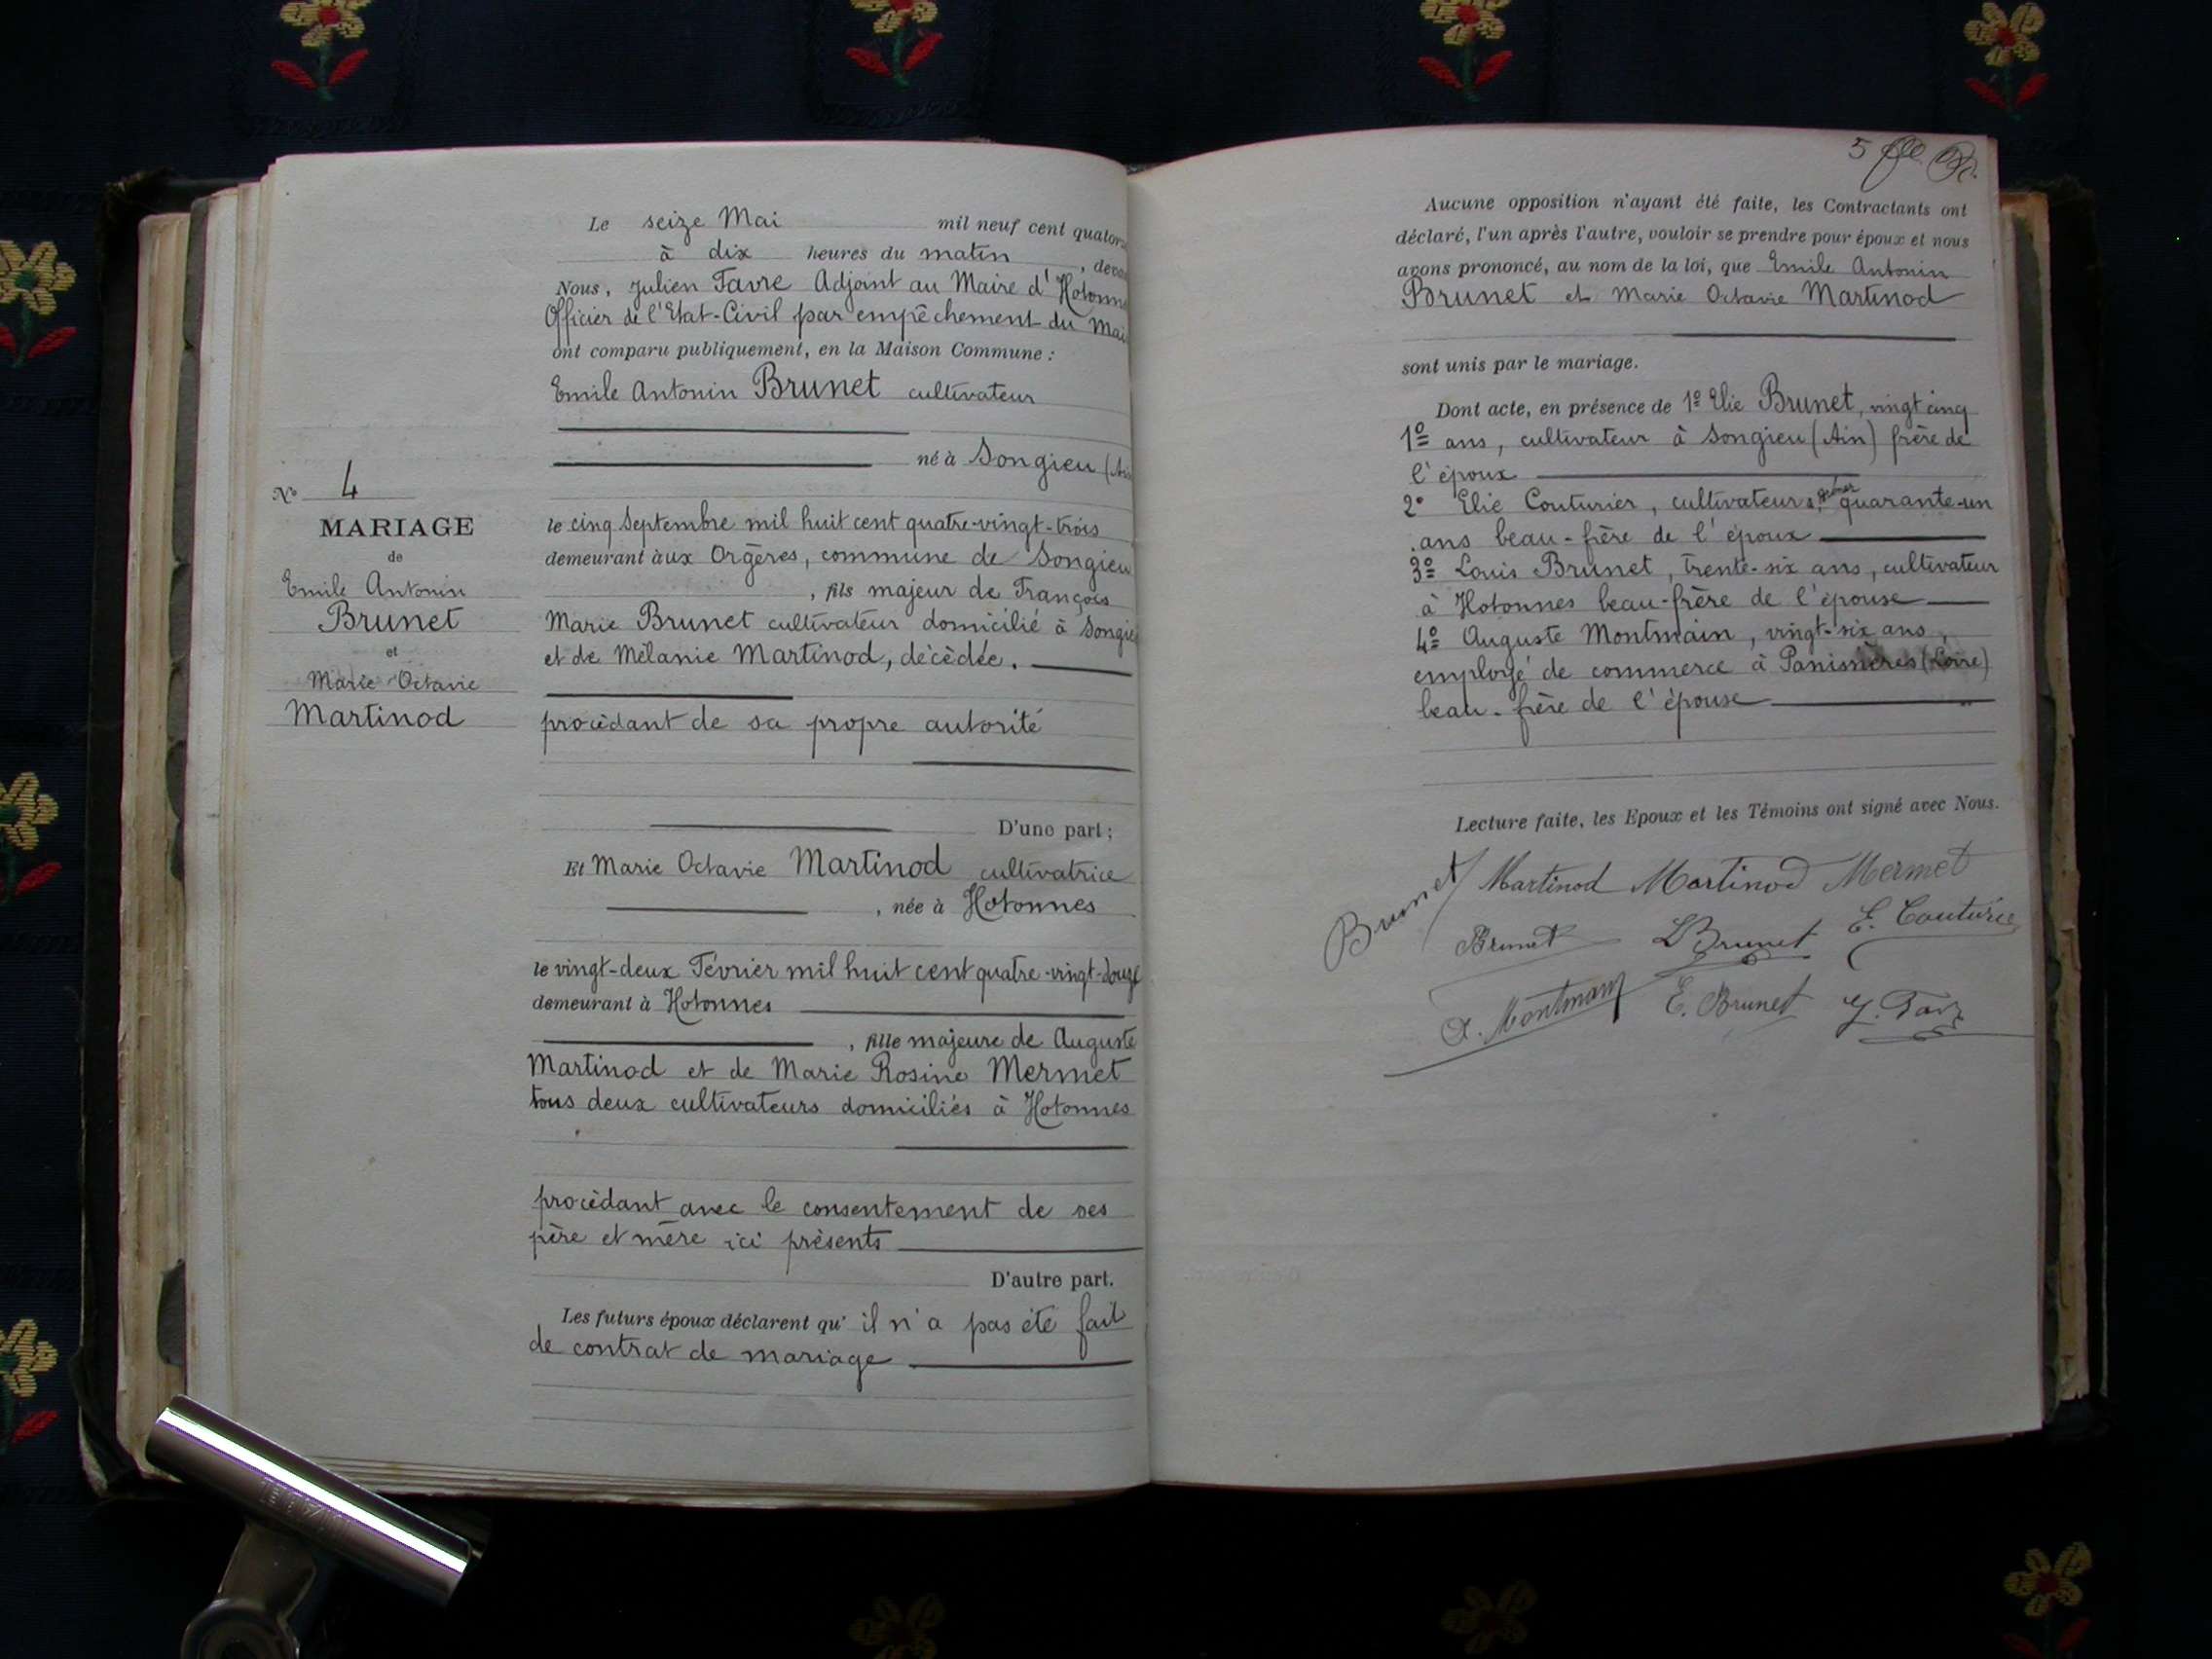 Le seize Mai mil neuf cent quator
à dix heures du matin, deva
Nous, Julien Favre Adjoint au Maire d'Hotonne
Officier de l'Etat-Civil par empêchement du Mai
ont comparu publiquement, en la Maison Commune :
Emile Antonin Brunet cultivateur
né à Songieu (Ain
le cinq Septembre mil huit cent quatre-vingt-trois
demeurant aux Orgères, commune de Songieu
, fils majeur de François
Marie Brunet cultivateur domicilié à Songieu
et de Mélanie Martinod, décédée.
procédant de sa propre autorité
D'une part ;
Et Marie Octavie Martinod cultivatrice
, née à Hotonnes
le vingt-deux Février mil huit cent quatre-vingt-douze
demeurant à Hotonnes
, fille majeure de Auguste
Martinod et de Marie Rosine Mermet
tous deux cultivateurs domiciliés à Hotonnes
procédant avec le consentement de ses
père et mère ici présents
D'autre part.
Les futurs époux déclarent qu' il n'a pas été fait
de contrat de mariage
No 4
MARIAGE
de
Emile Antonin
Brunet
et
Marie Octavie
Martinod
5
Aucune opposition n'ayant été faite, les Contractants ont
déclaré, l'un après l'autre, vouloir se prendre pour époux et nous
avons prononcé, au nom de la loi, que Emile Antonin
Brunet et Marie Octavie Martinod
sont unis par le mariage.
Dont acte, en présence de 1º Elie Brunet, vingt cinq
1º ans, cultivateur à Songieu (Ain) frère de
l'époux
2º Elie Couturier, cultivateur, quarante-un
ans beau-frère de l'époux
3º Louis Brunet, trente-six ans, cultivateur
à Hotonnes beau-frère de l'épouse
4º Auguste Montmain, vingt-six ans,
employé de commerce à Panissières (Loire)
beau-frère de l'épouse
Lecture faite, les Epoux et les Témoins ont signé avec Nous.
Brunet Martinod Martinod Mermet
Brunet L Brunet E. Couturier
A. Montmain E. Brunet J. Favre